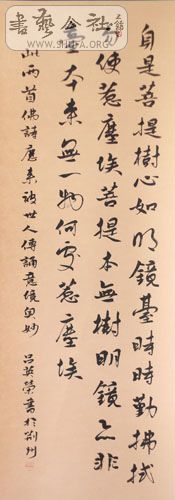 書藝公社
WWW.SHUFA.ORG
自是菩提樹心如明鏡臺時時勤拂拭
勿使惹塵埃菩提本無樹明鏡亦非
臺本来無一物何處惹塵埃
此兩首佛詩歷来被世人傳誦意境奧妙
呂英榮書於荆州